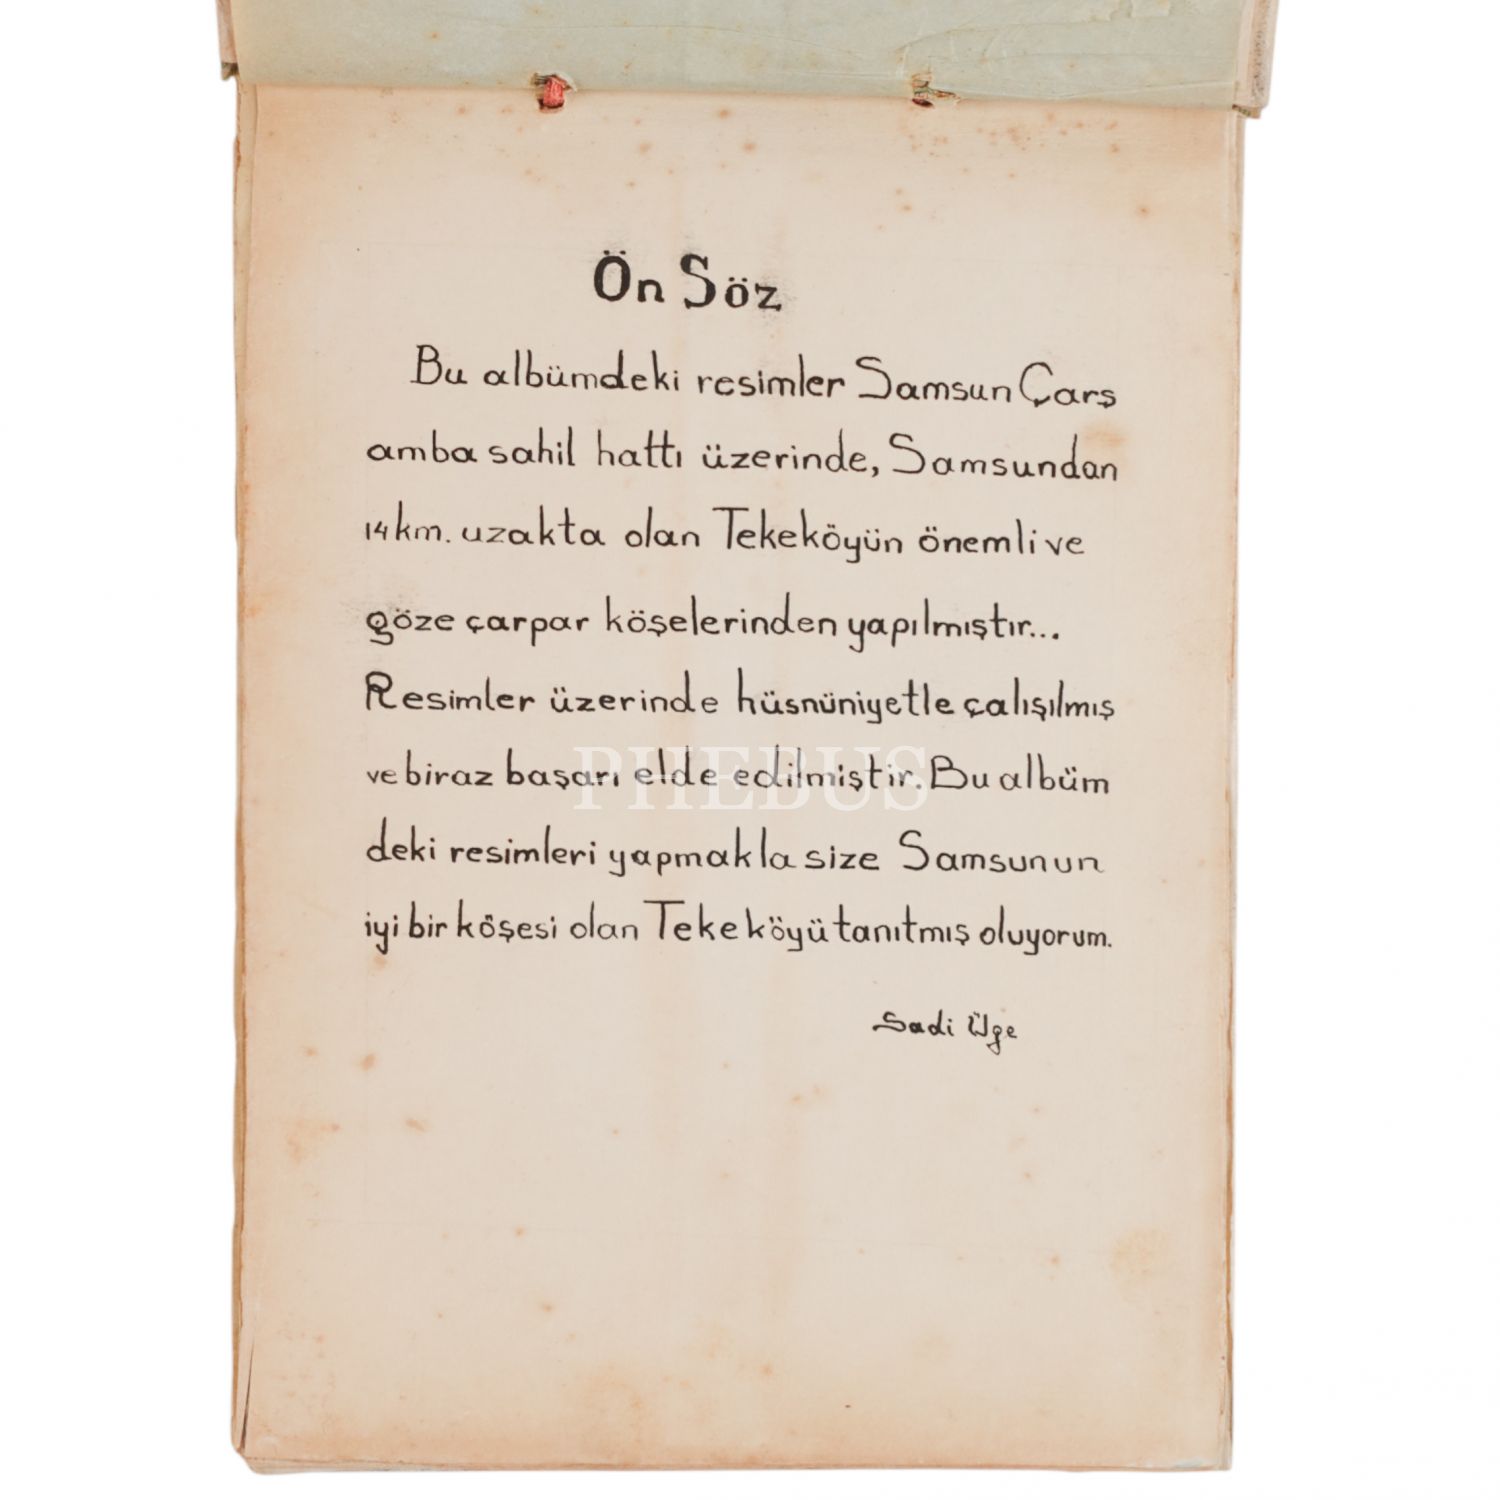 Ön Söz
Bu albümdeki resimler Samsun Çarş
amba sahil hattı üzerinde, Samsundan
14 km. uzakta olan Tekeköyün önemli ve
göze çarpar köşelerinden yapılmıştır...
Resimler üzerinde hüsnüniyetle çalışılmış
ve biraz başarı elde edilmiştir. Bu albüm
deki resimleri yapmakla size Samsunun
iyi bir köşesi olan Tekeköyü tanıtmış oluyorum.
Sadi Ülge
PHEBUS